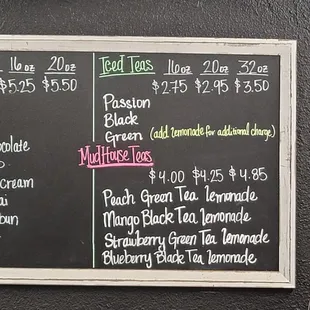 16oz 20oz
$5.25 $5.50
Cream
Iced Teas 16oz 20oz 32oz
$2.75 $2.95 $3.50
Passion
Black
Green (add lemonade for additional charge)
MudHouse Teas
$4.00 $4.25 $4.85
Peach Green Tea lemonade
Mango Black Tea lemonade
Strawberry Green Tea lemonade
Blueberry Black Tea lemonade